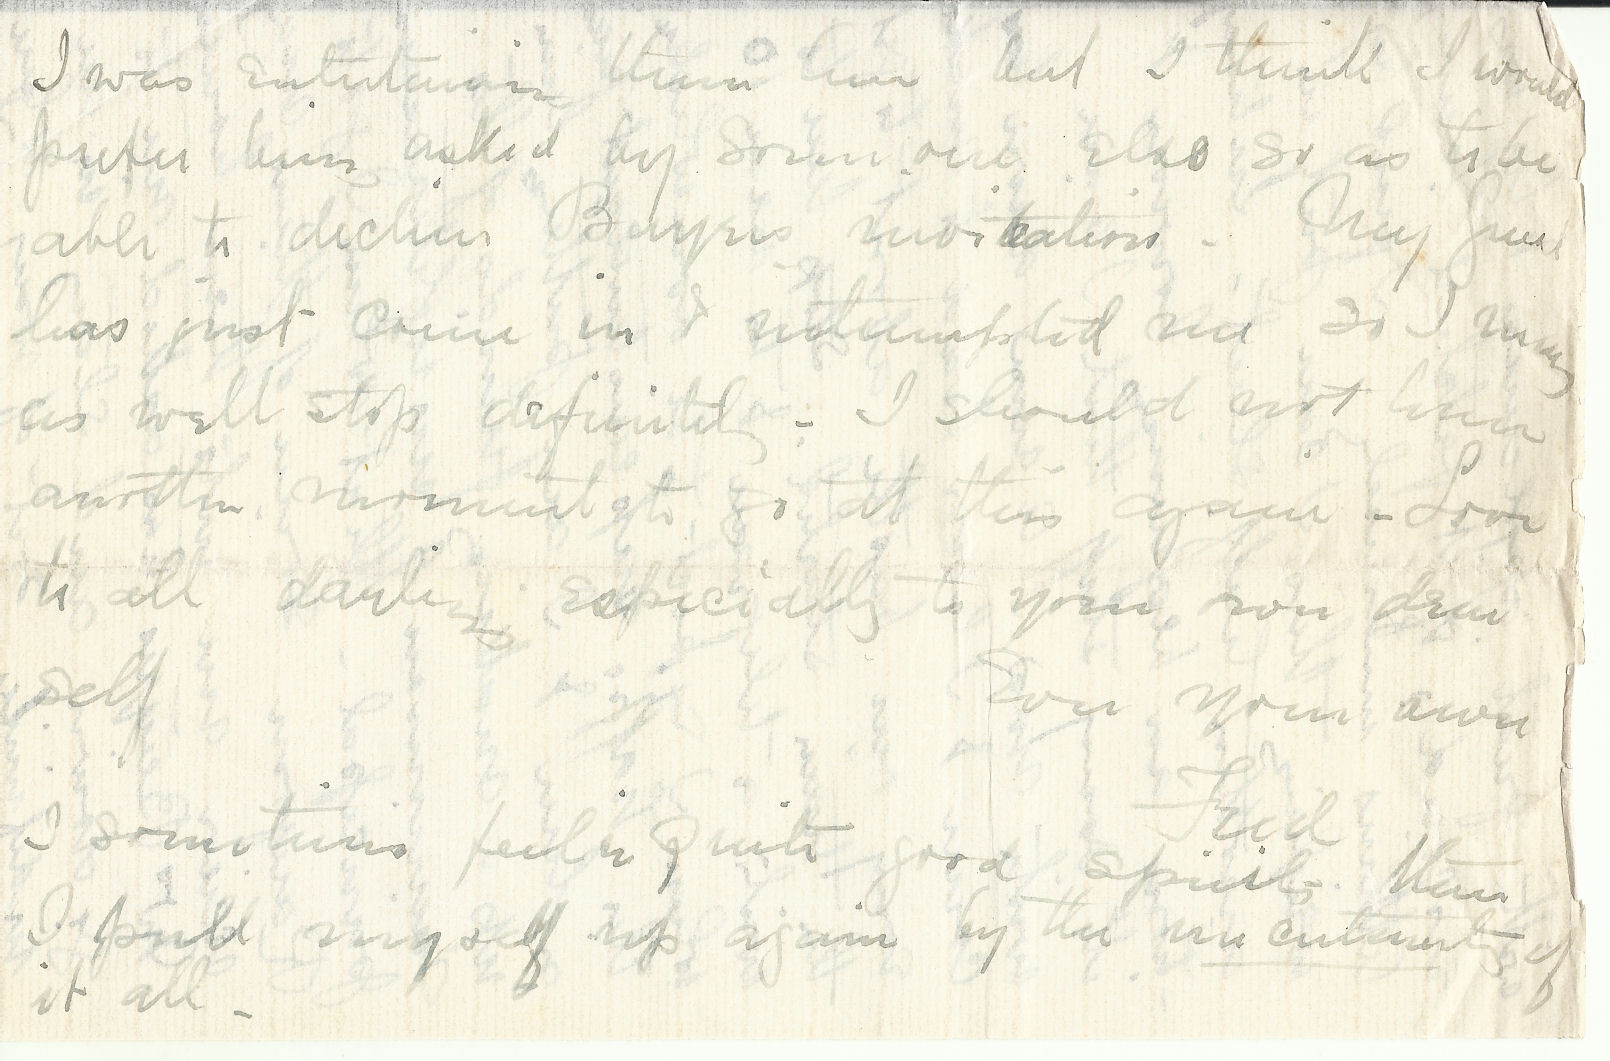 I was entertaining them here but I think I would
prefer being asked by some one else so as to be
able to decline invitation - My Guest
has just come in & interrupted me so I may
as well stop definitely - I should not have
another moment to go at this again - Love
to all darling especially to your own dear
self Ever your own
Fred
I sometimes feel in quite good spirits then
I pull myself up again by the uncertainty of
it all -